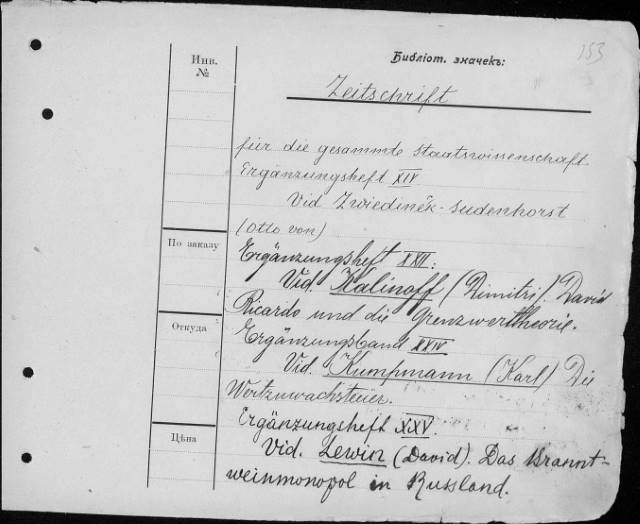 153
Инв. №
Библіот. значекъ:
Zeitschrift
für die gesammte Staatswinenschaft.
Ergänzungsheft XIV
Vid Zwiedinek-Sudenhorst
(Otto von)
По заказу
Ergänzungsheft XXII:
Vid. Kalinoff (Dimitri). David
Ricardo und die Grenzwerttheorie.
Откуда
Ergänzungsband XXIV
Vid. Kumpmann (Karl) Die
Wertzuwachsteuer.
Ergänzungsheft XXV.
Цѣна
Vid. Lewin (David). Das Brannt-
weinmonopol in Russland.